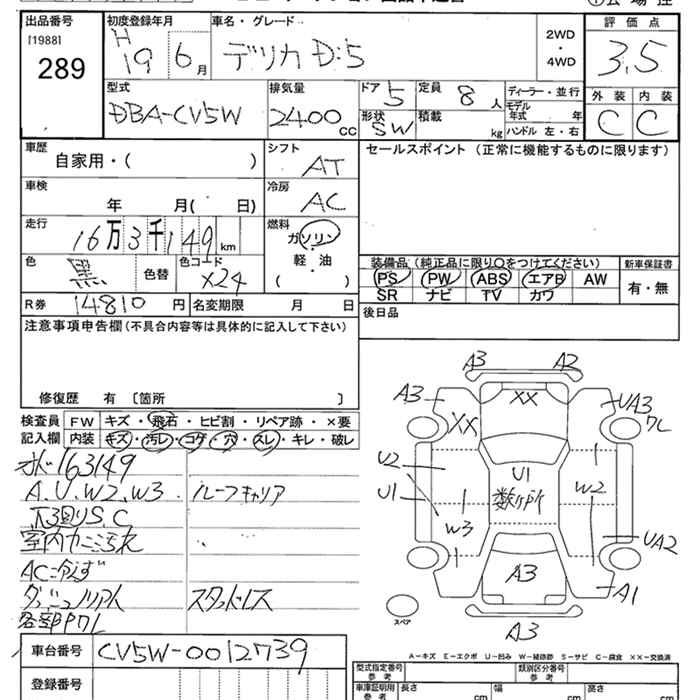 出品番号
[1988]
289
初度登録年月
H 19 6月
車名・グレード
デリカ D:5
2WD
・
4WD
評価点
3.5
型式
DBA-CV5W
排気量
2400 CC
ドア 5
定員 8 人
形状 SW
積載 kg
ディーラー・並行
モデル
年式 年
ハンドル 左・右
外装 内装
C C
車歴
自家用・( )
シフト
AT
セールスポイント (正常に機能するものに限ります)
車検
年 月( 日)
冷房
AC
走行
16万3千149 km
燃料
ガソリン
・
軽・油
( )
色
黒
色替
色コード
X24
装備品 (純正品に限り○をつけてください)
新車保証書
PS PW ABS エアB AW
SR ナビ TV カワ
有・無
R券 14810 円
名変期限 月 日
後日品
注意事項申告欄(不具合内容等は具体的に記入して下さい)
修復歴 有 〔箇所 〕
検査員
記入欄
FW キズ・飛石・ヒビ割・リペア跡・×要
内装 キズ・汚レ・コゲ・穴・スレ・キレ・破レ
163149
A.U.W2.W3 ルーフキャリア
下廻りS.C
AC
スタッドレス
各部
車台番号
CV5W-0012739
登録番号
A3 A2
A3 XX XX UA3
ワレ
U2
U1
W3
U1
数ヶ所
W2
UA2
A3
A1
スペア
A3
A－キズ E－エクボ U－凹み W－補修跡 S－サビ C－腐食 ××－交換済
型式指定番号
参考
類別区分番号
参考
車庫証明用
参考
長さ cm
幅 cm
高さ cm